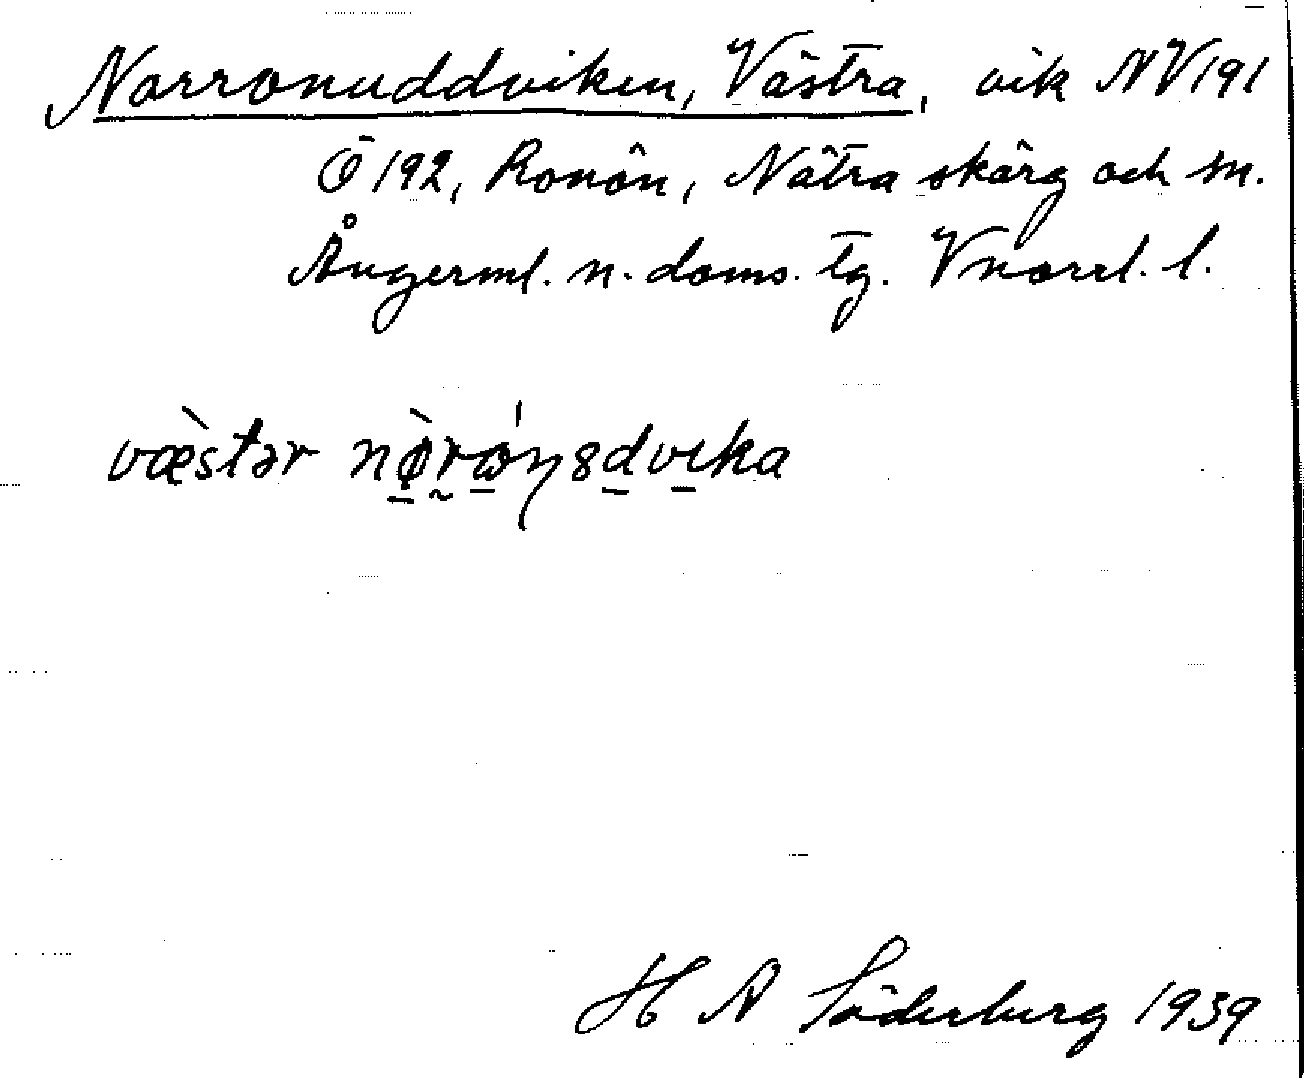 Norronuddviken, Västra, vik NV 191
Ö 192, Ronön, Nätra skärg och sn.
Ångerml. n. doms. tg. Vnorrl. l.
væ̀stər nø̀rωńȣdvıka
H A Söderberg 1939